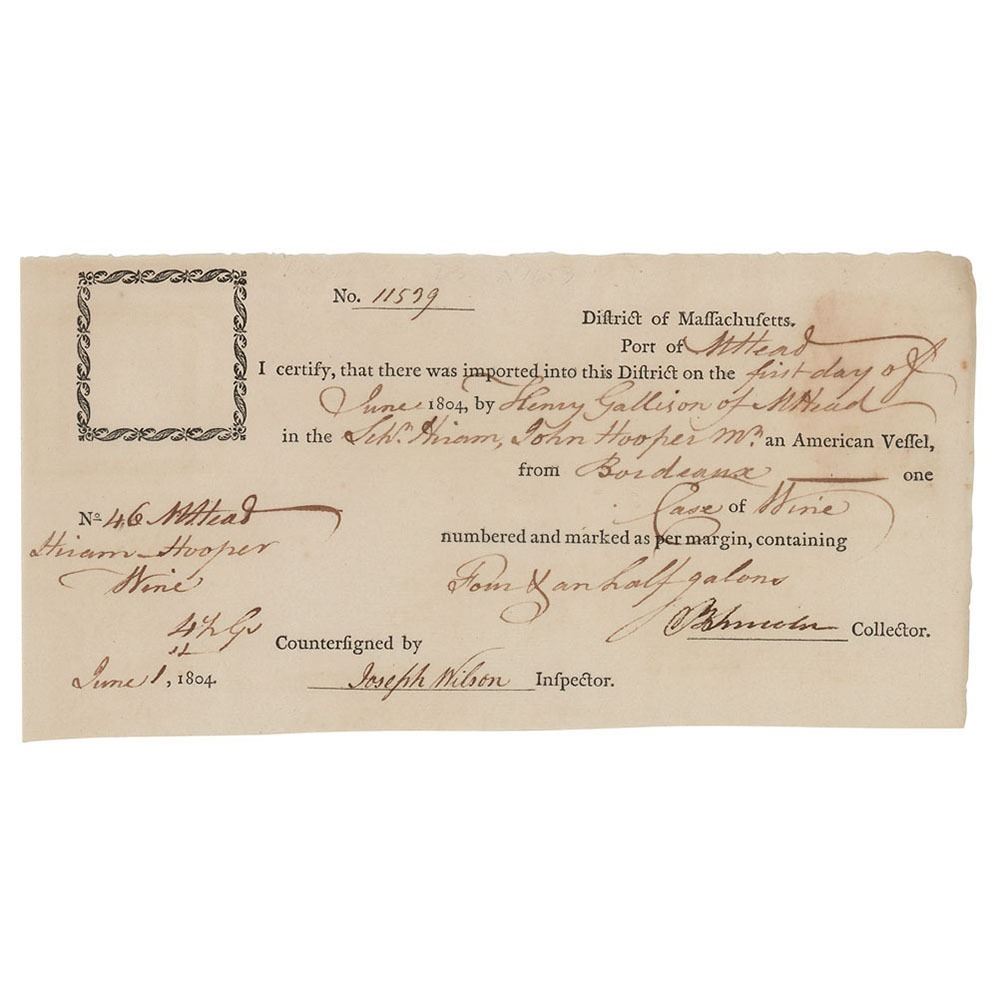 No. 11539
Diſtrict of Maſſachuſetts.
Port of MHead
I certify, that there was imported into this Diſtrict on the first day of
June 1804, by Henry Gallison of MHead
in the Schr. Hiram, John Hooper Mr. an American Veſſel,
from Bordeaux one
Case of Wine
numbered and marked as per margin, containing
Four & an half galons
Collector.
No 46 MHead
Hiram - Hooper
Wine
4½ Gs
June 1, 1804.
Counterſigned by
Joseph Wilson Inſpector.